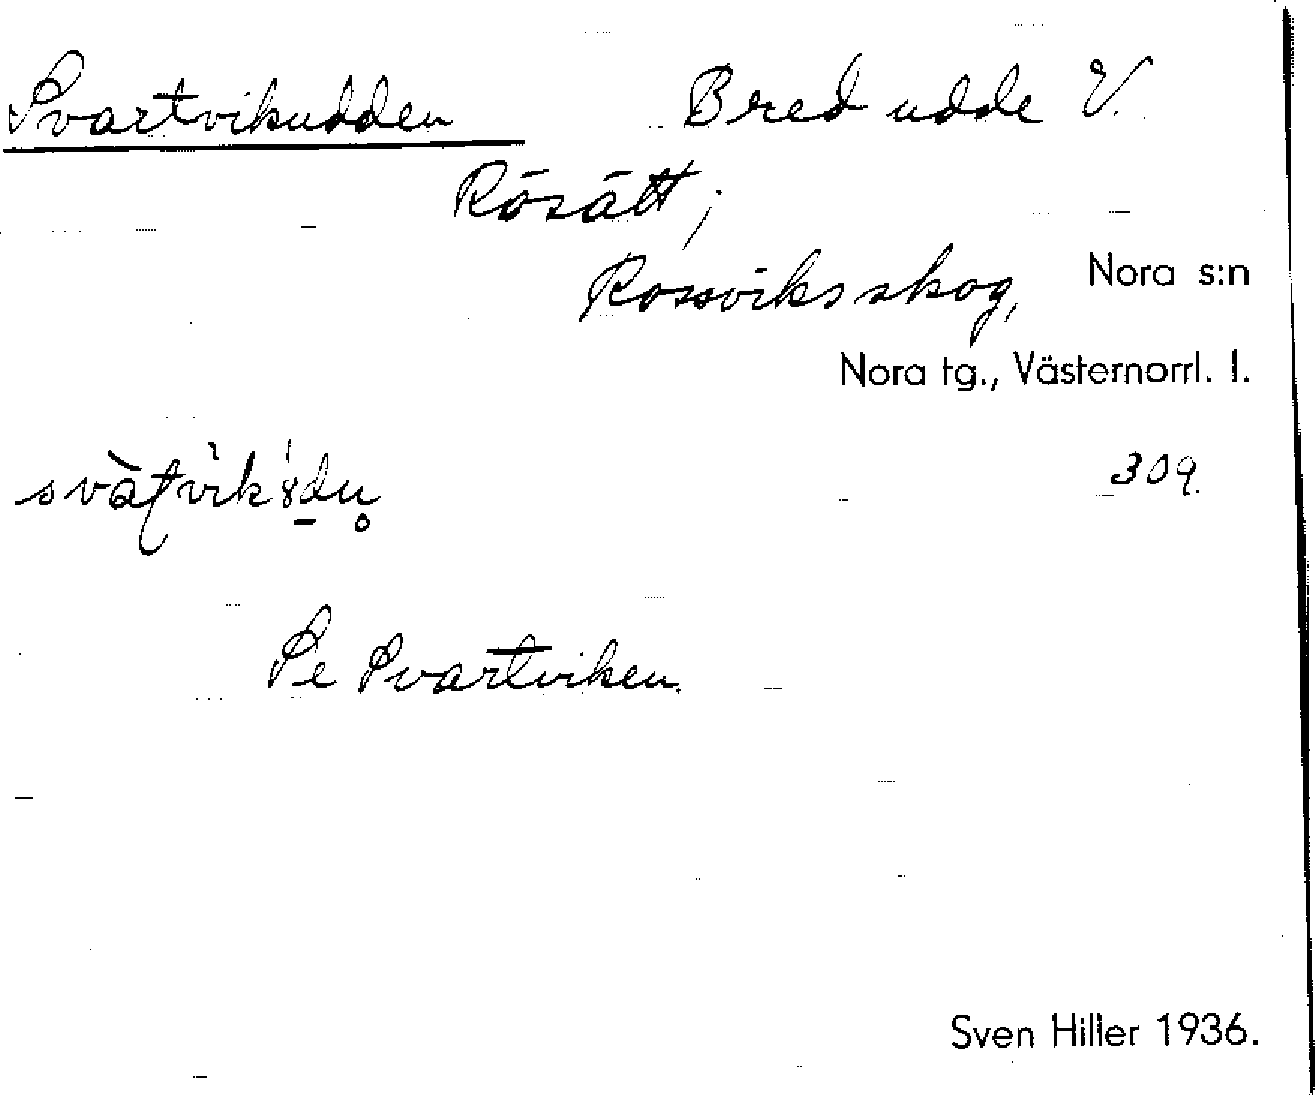 Svartvikudden Bred udde V.
Rösätt;
Rossviksskog, Nora s:n
Nora tg., Västernorrl. l.
309.
Se Svartviken.
Sven Hiller 1936.